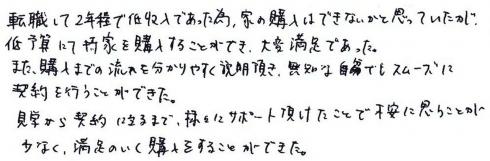 転職して2年程で低収入であった為、家の購入はできないかと思っていたが、
低予算にて持家を購入することができ、大変満足であった。
また、購入までの流れを分かりやすく説明頂き、無知な自分でもスムーズに
契約を行うことができた。
見学から契約に至るまで、様々にサポート頂けたことで不安に思うことが
少なく、満足のいく購入をすることができた。